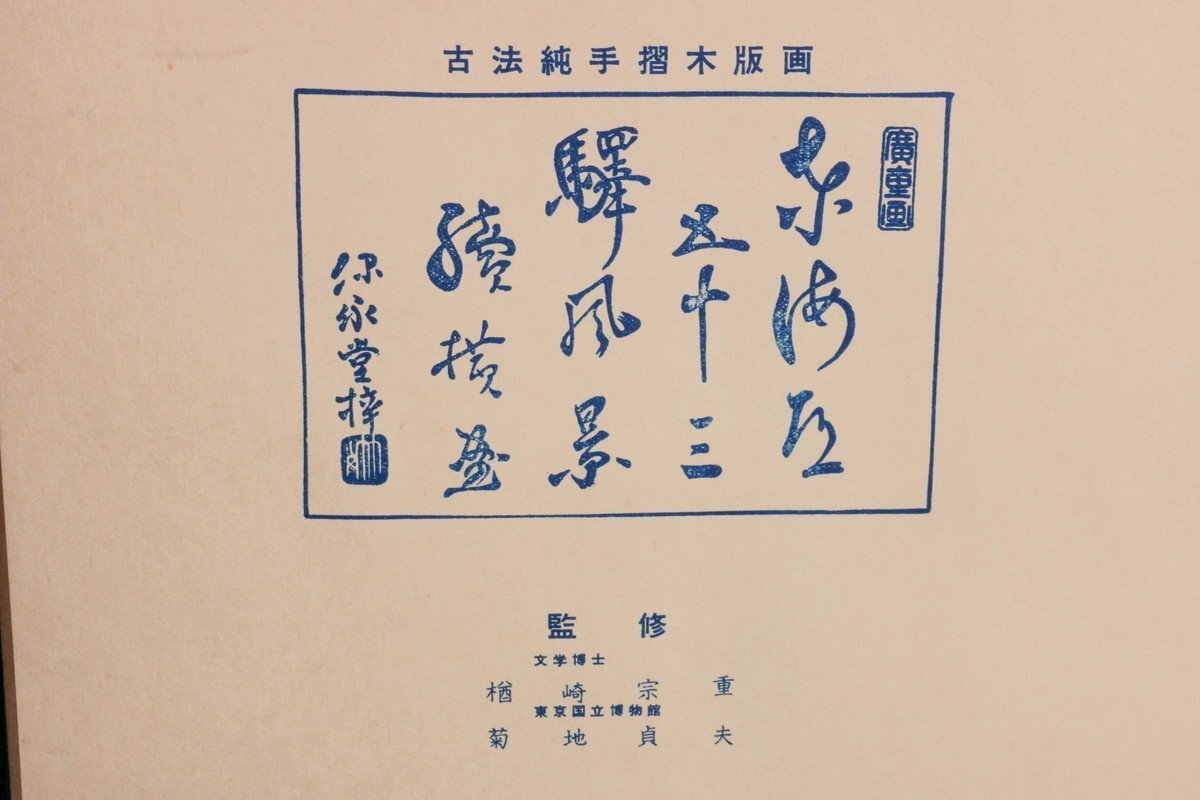 古法純手摺木版画
廣重画
東海道
五十三
驛風景
續横畫
保永堂梓
監修
文学博士
楢崎宗重
東京国立博物館
菊地貞夫